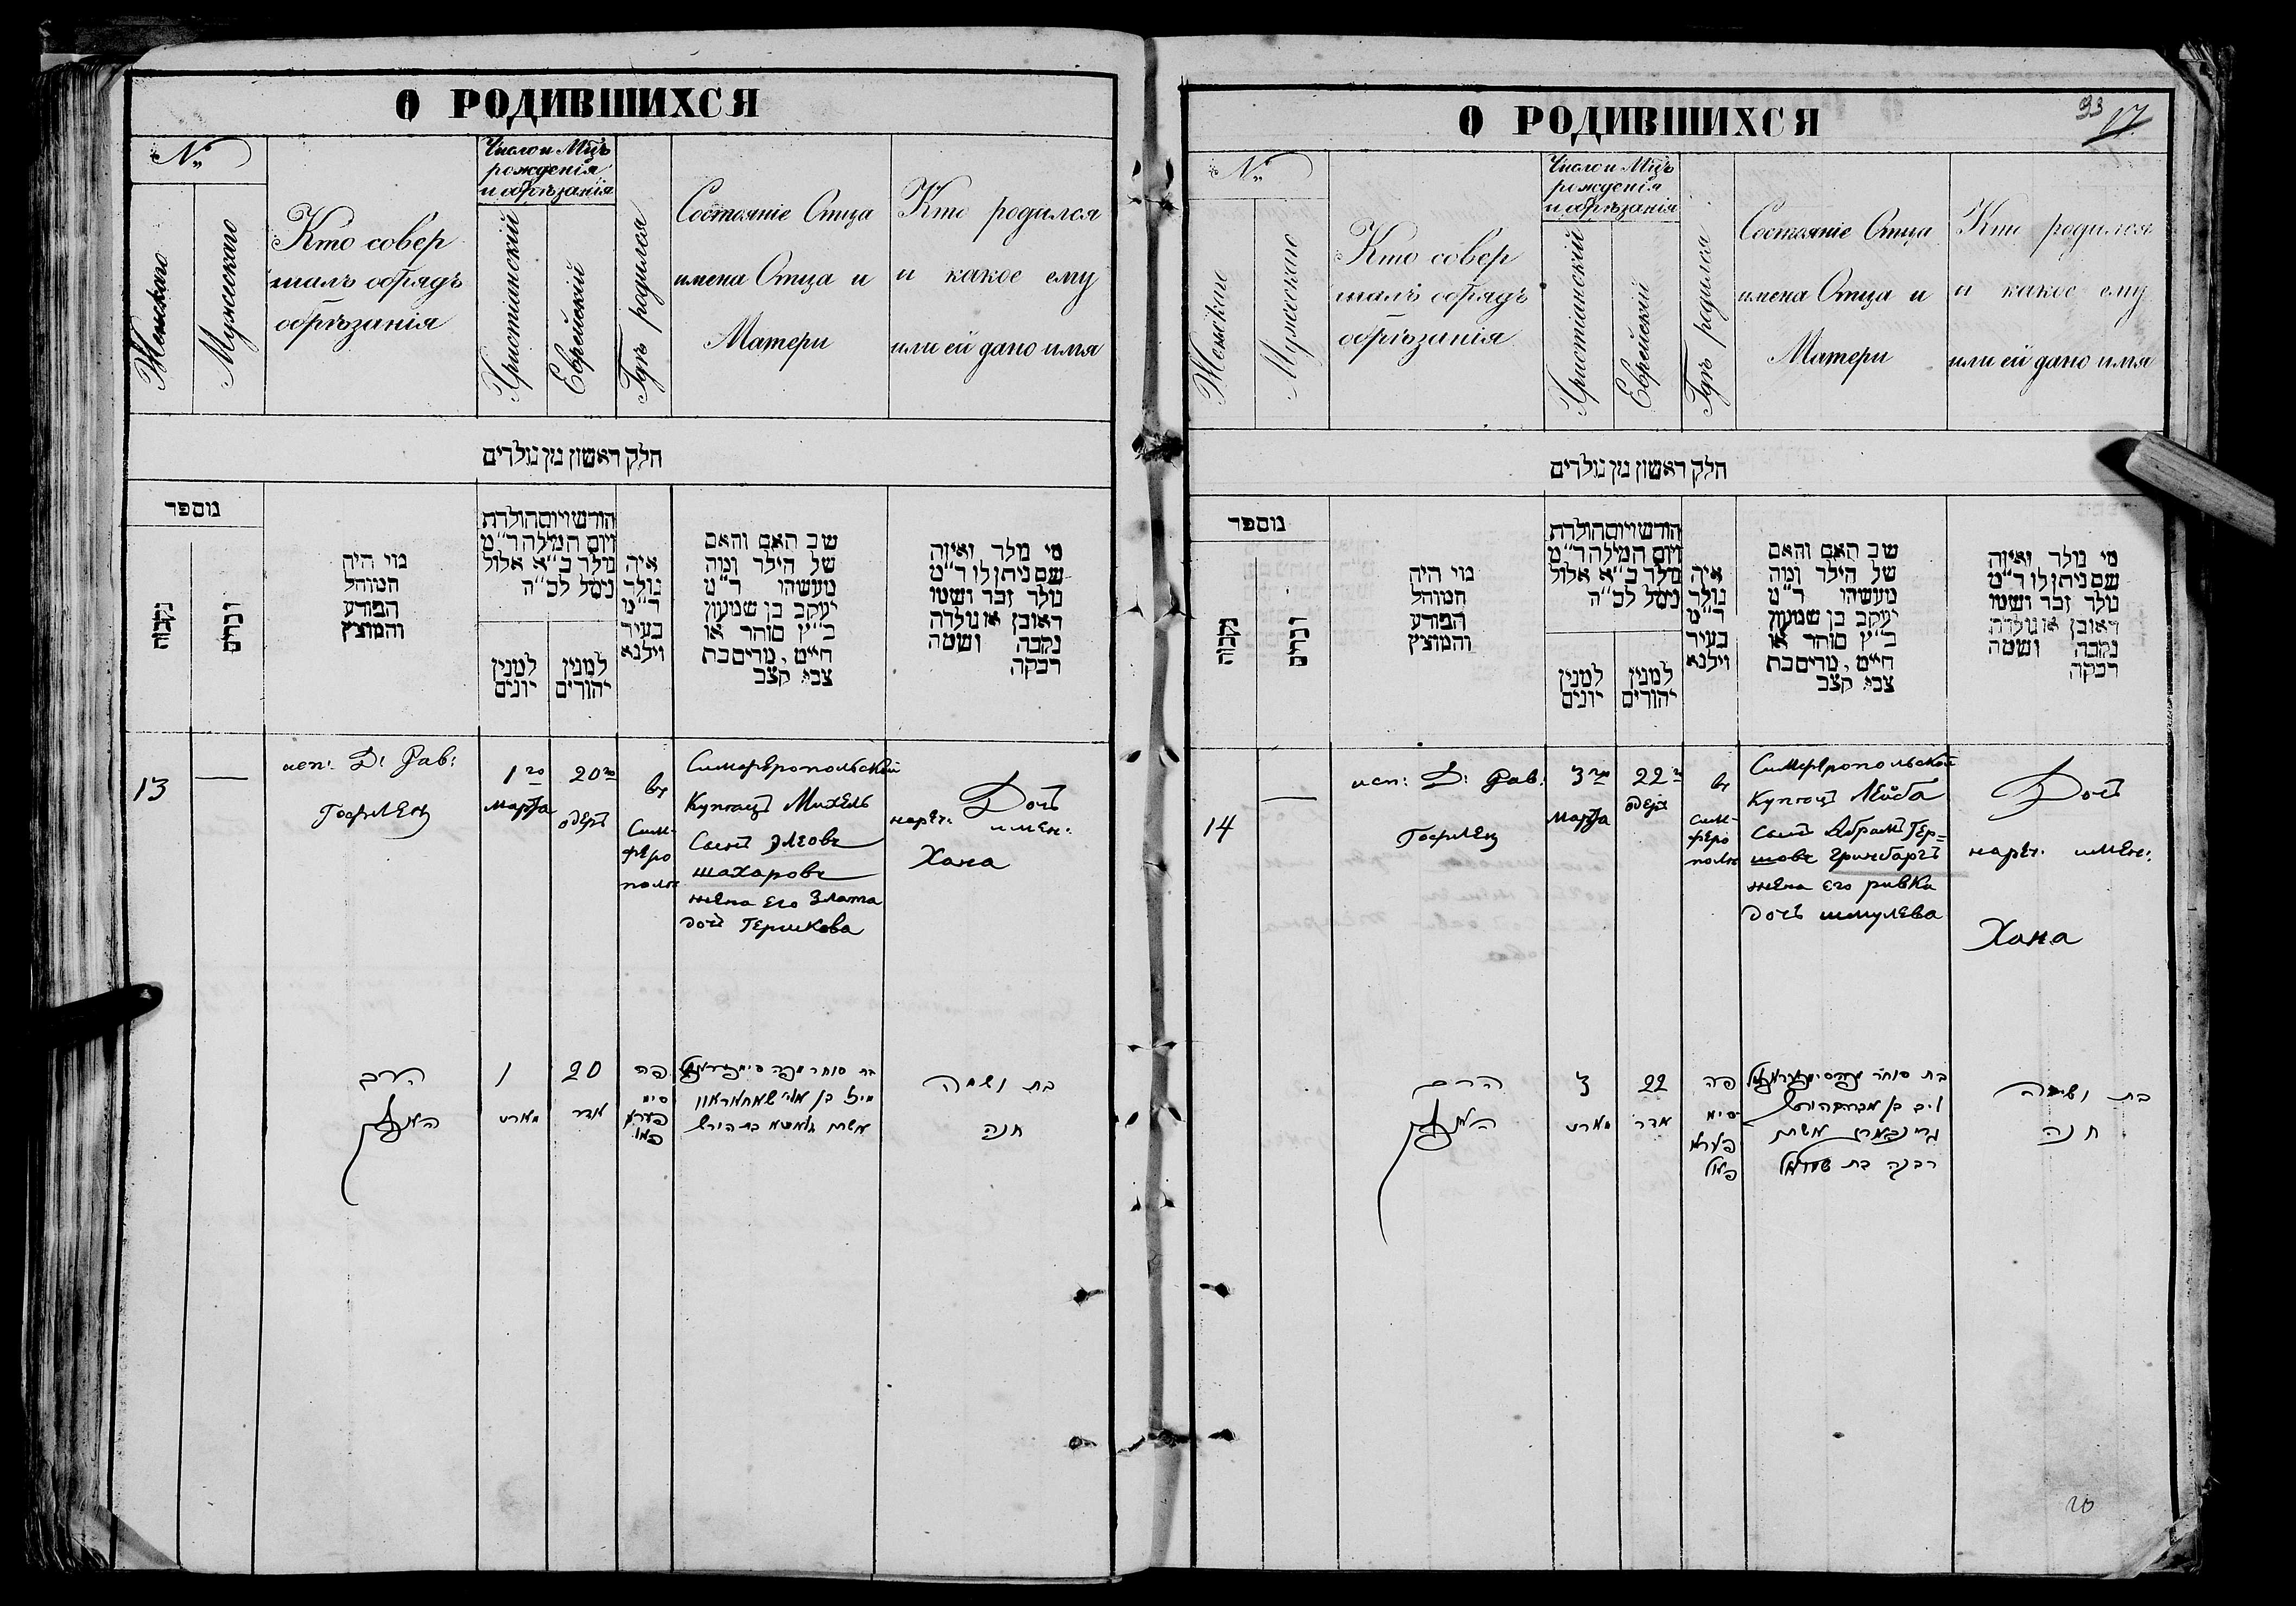 О РОДИВШИХСЯ
№
Женскаго
Мужескаго
Кто совер
шалъ обрядъ
обрѣзанія
Число и Мцъ
рожденія
и обрѣзанія
Христіанскій
Еврейскій
Гдѣ родился
Состояніе Отца
имена Отца и
Матери
Кто родился
и какое ему
или ей дано имя
חלק ראשון מן נולדים
מוספר
נקבות
זכרים
מי היה
המוהל
הפורע
והמוצץ
חודש ויום הולדת
ויום המילה ר"מ
נולד ב"א אלול
נימל לס"ה
למנין
יונים
למנין
יהודים
איה
נולד
ר"מ
בעיר
ווילנא
שב האם והאם
של הילד ומה
מעשיהו ר"מ
יעקב בן שמעון
כ"ץ סוחר או
חייט, מרים בת
צבי קצב
מי נולד ואיזה
שם ניתן לו ר"מ
נולד זכר ושמו
ראובן או נולדה
נקבה ושמה
רבקה
13
—
исп: Д: Рав:
Гофленц
1го
Марта
20го
одеръ
въ
Сим-
феро
поль
Симферопольской
Купецъ Михель
Сынъ Элеовъ
шахаровъ
жена его Злата
дочь Гершкова
Дочь
нареч: имен:
Хана
הרב
1
מארט
20
אדר
פה
סימ
פערא
פאל
בת ושמה
חנה
О РОДИВШИХСЯ
33
17
№
Женскаго
Мужескаго
Кто совер
шалъ обрядъ
обрѣзанія
Число и Мцъ
рожденія
и обрѣзанія
Христіанскій
Еврейскій
Гдѣ родился
Состояніе Отца
имена Отца и
Матери
Кто родился
и какое ему
или ей дано имя
חלק ראשון מן נולדים
מוספר
נקבות
זכרים
מי היה
המוהל
הפורע
והמוצץ
חודש ויום הולדת
ויום המילה ר"מ
נולד ב"א אלול
נימל לס"ה
למנין
יונים
למנין
יהודים
איה
נולד
ר"מ
בעיר
ווילנא
שב האם והאם
של הילד ומה
מעשיהו ר"מ
יעקב בן שמעון
כ"ץ סוחר או
חייט, מרים בת
צבי קצב
מי נולד ואיזה
שם ניתן לו ר"מ
נולד זכר ושמו
ראובן או נולדה
נקבה ושמה
רבקה
14
—
исп: Д: Рав:
Гофленц
3го
Марта
22го
одеръ
въ
сим-
феро
поль
Симферопольской
Купецъ Лейба
сынъ Абрамъ Гер=
шовъ Гринбаргъ
жена его ривка
дочь шмулева
Дочь
нареч: имен:
Хана
הרב
3
מארט
22
אדר
פה
סימ
פערא
פאל
רבקה בת שמואל
בת ושמה
חנה
20